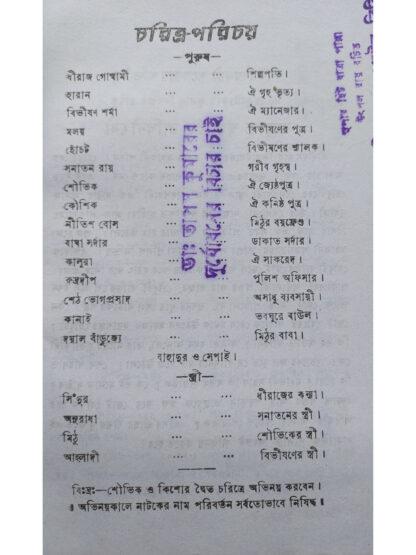 চরিত্র-পরিচয়
—পুরুষ—
ধীরাজ গোস্বামী ... ... শিল্পপতি।
হারান ... ... ঐ গৃহ ভৃত্য।
বিভীষণ শর্মা ... ... ঐ ম্যানেজার।
মলয় ... ... বিভীষণের পুত্র।
হোঁচট ... ... বিভীষণের শ্যালক।
সনাতন রায় ... ... গরীব গৃহস্থ।
শৌভিক ... ... ঐ জ্যেষ্ঠপুত্র।
কৌশিক ... ... ঐ কনিষ্ঠ পুত্র।
নীতিশ বোস ... ... মিঠুর বয়ফ্রেণ্ড।
বাঘা সর্দার ... ... ডাকাত সর্দার।
কালুরা ... ... ঐ সাকরেদ।
রুদ্রদীপ ... ... পুলিশ অফিসার।
শেঠ ভোগপ্রসাদ ... ... অসাধু ব্যবসায়ী।
কানাই ... ... ভবঘুরে বাউল।
দয়াল বাঁড়ুজ্যে ... ... মিঠুর বাবা।
বাহাদুর ও সেপাই।
—স্ত্রী—
সিঁদুর ... ... ধীরাজের কন্যা।
অনুরাধা ... ... সনাতনের স্ত্রী।
মিঠু ... ... শৌভিকের স্ত্রী।
আহ্লাদী ... ... বিভীষণের স্ত্রী।
বিঃদ্রঃ—শৌভিক ও কিশোর দ্বৈত চরিত্রে অভিনয় করবেন।
॥ অভিনয়কালে নাটকের নাম পরিবর্তন সর্বতোভাবে নিষিদ্ধ ॥
ডাঃ তাপস কুমারের
দুর্যোধনের বিচার চাই